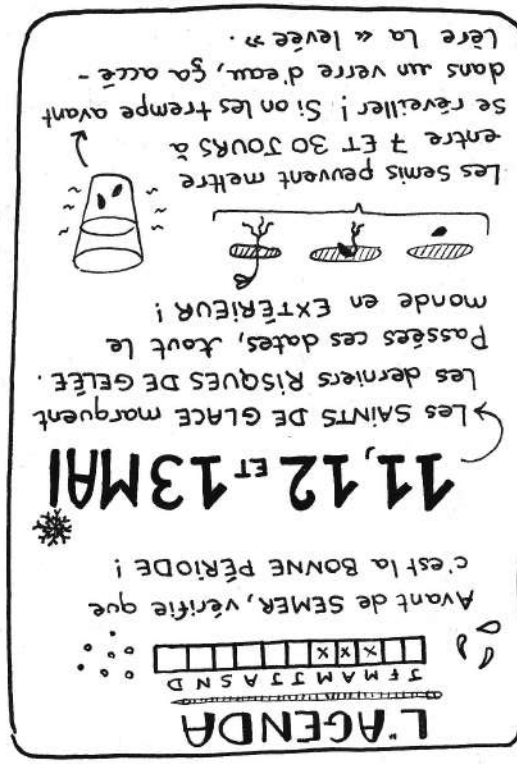 L'AGENDA
J F M A M J J A S N D
x x x
Avant de SEMER, vérifie que
c'est la BONNE PÉRIODE !
11, 12 ET 13 MAI
Les SAINTS DE GLACE marquent
les derniers RISQUES DE GELÉE.
Passées ces dates, tout le
monde en EXTÉRIEUR !
Les semis peuvent mettre
entre 7 ET 30 JOURS à
se réveiller ! Si on les trempe avant
dans un verre d'eau, ça accé-
lère la « levée ».